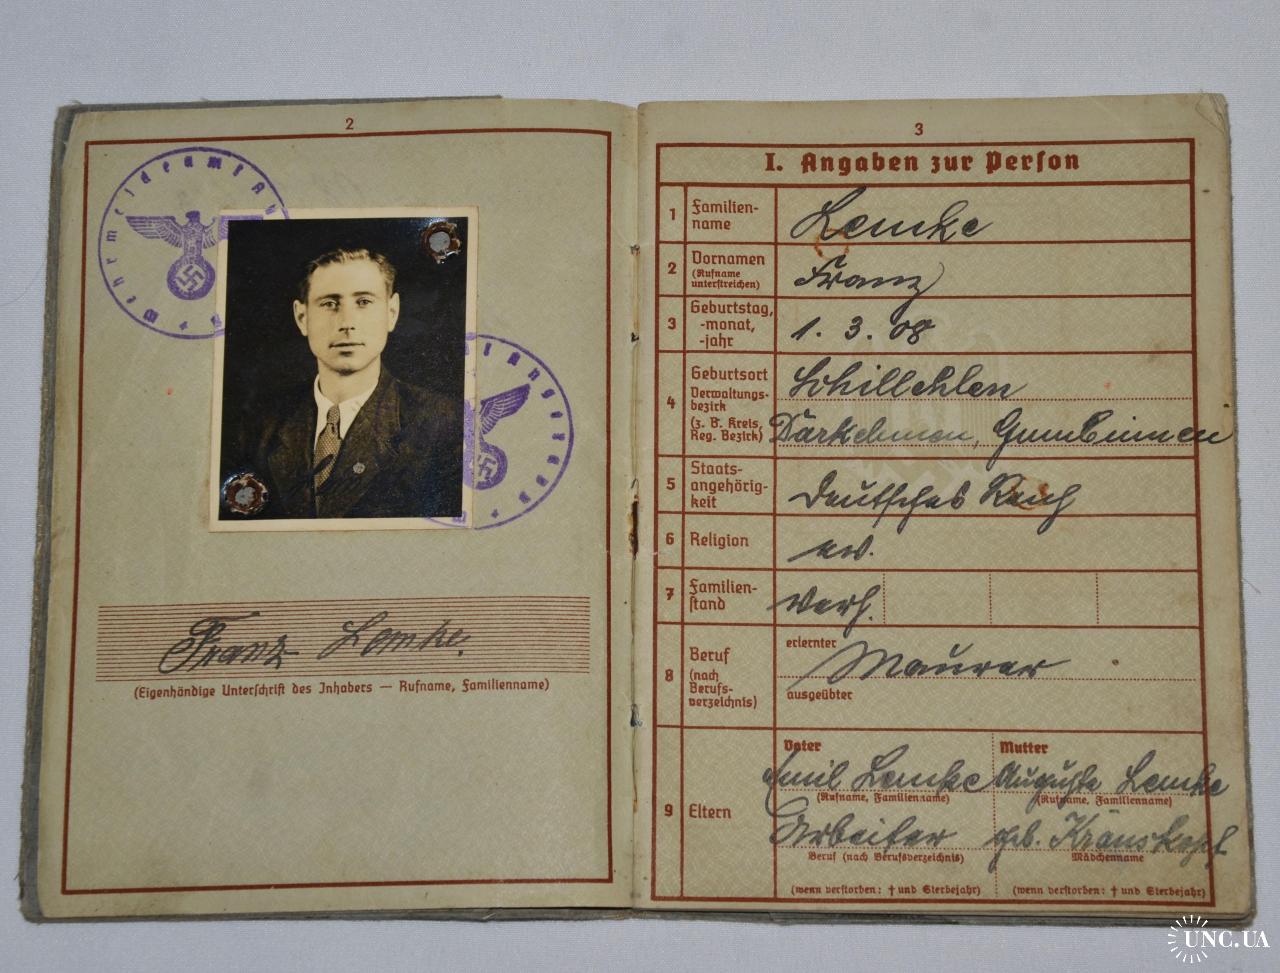 2
Wehrmeldeamt An
Angerapp
Franz Lemke.
(Eigenhändige Unterschrift des Inhabers — Rufname, Familienname)
3
I. Angaben zur Person
1 Familien-
name
Lemke
2 Vornamen
(Rufname
unterstreichen)
Franz
3 Geburtstag,
-monat,
-jahr
1. 3. 08
4 Geburtsort
Verwaltungs-
bezirk
(z. B. Kreis,
Reg. Bezirk)
Schillehlen
Darkehmen, Gumbinnen
5 Staats-
angehörig-
keit
Deutsches Reich
6 Religion
ev.
7 Familien-
stand
verh.
8 Beruf
(nach
Berufs-
verzeichnis)
erlernter
Maurer
ausgeübter
9 Eltern
Vater
Emil Lemke
(Rufname, Familienname)
Arbeiter
Beruf (nach Berufsverzeichnis)
(wenn verstorben: † und Sterbejahr)
Mutter
Auguste Lemke
(Rufname, Familienname)
geb. Kranskopf
Mädchenname
(wenn verstorben: † und Sterbejahr)
UNC.UA